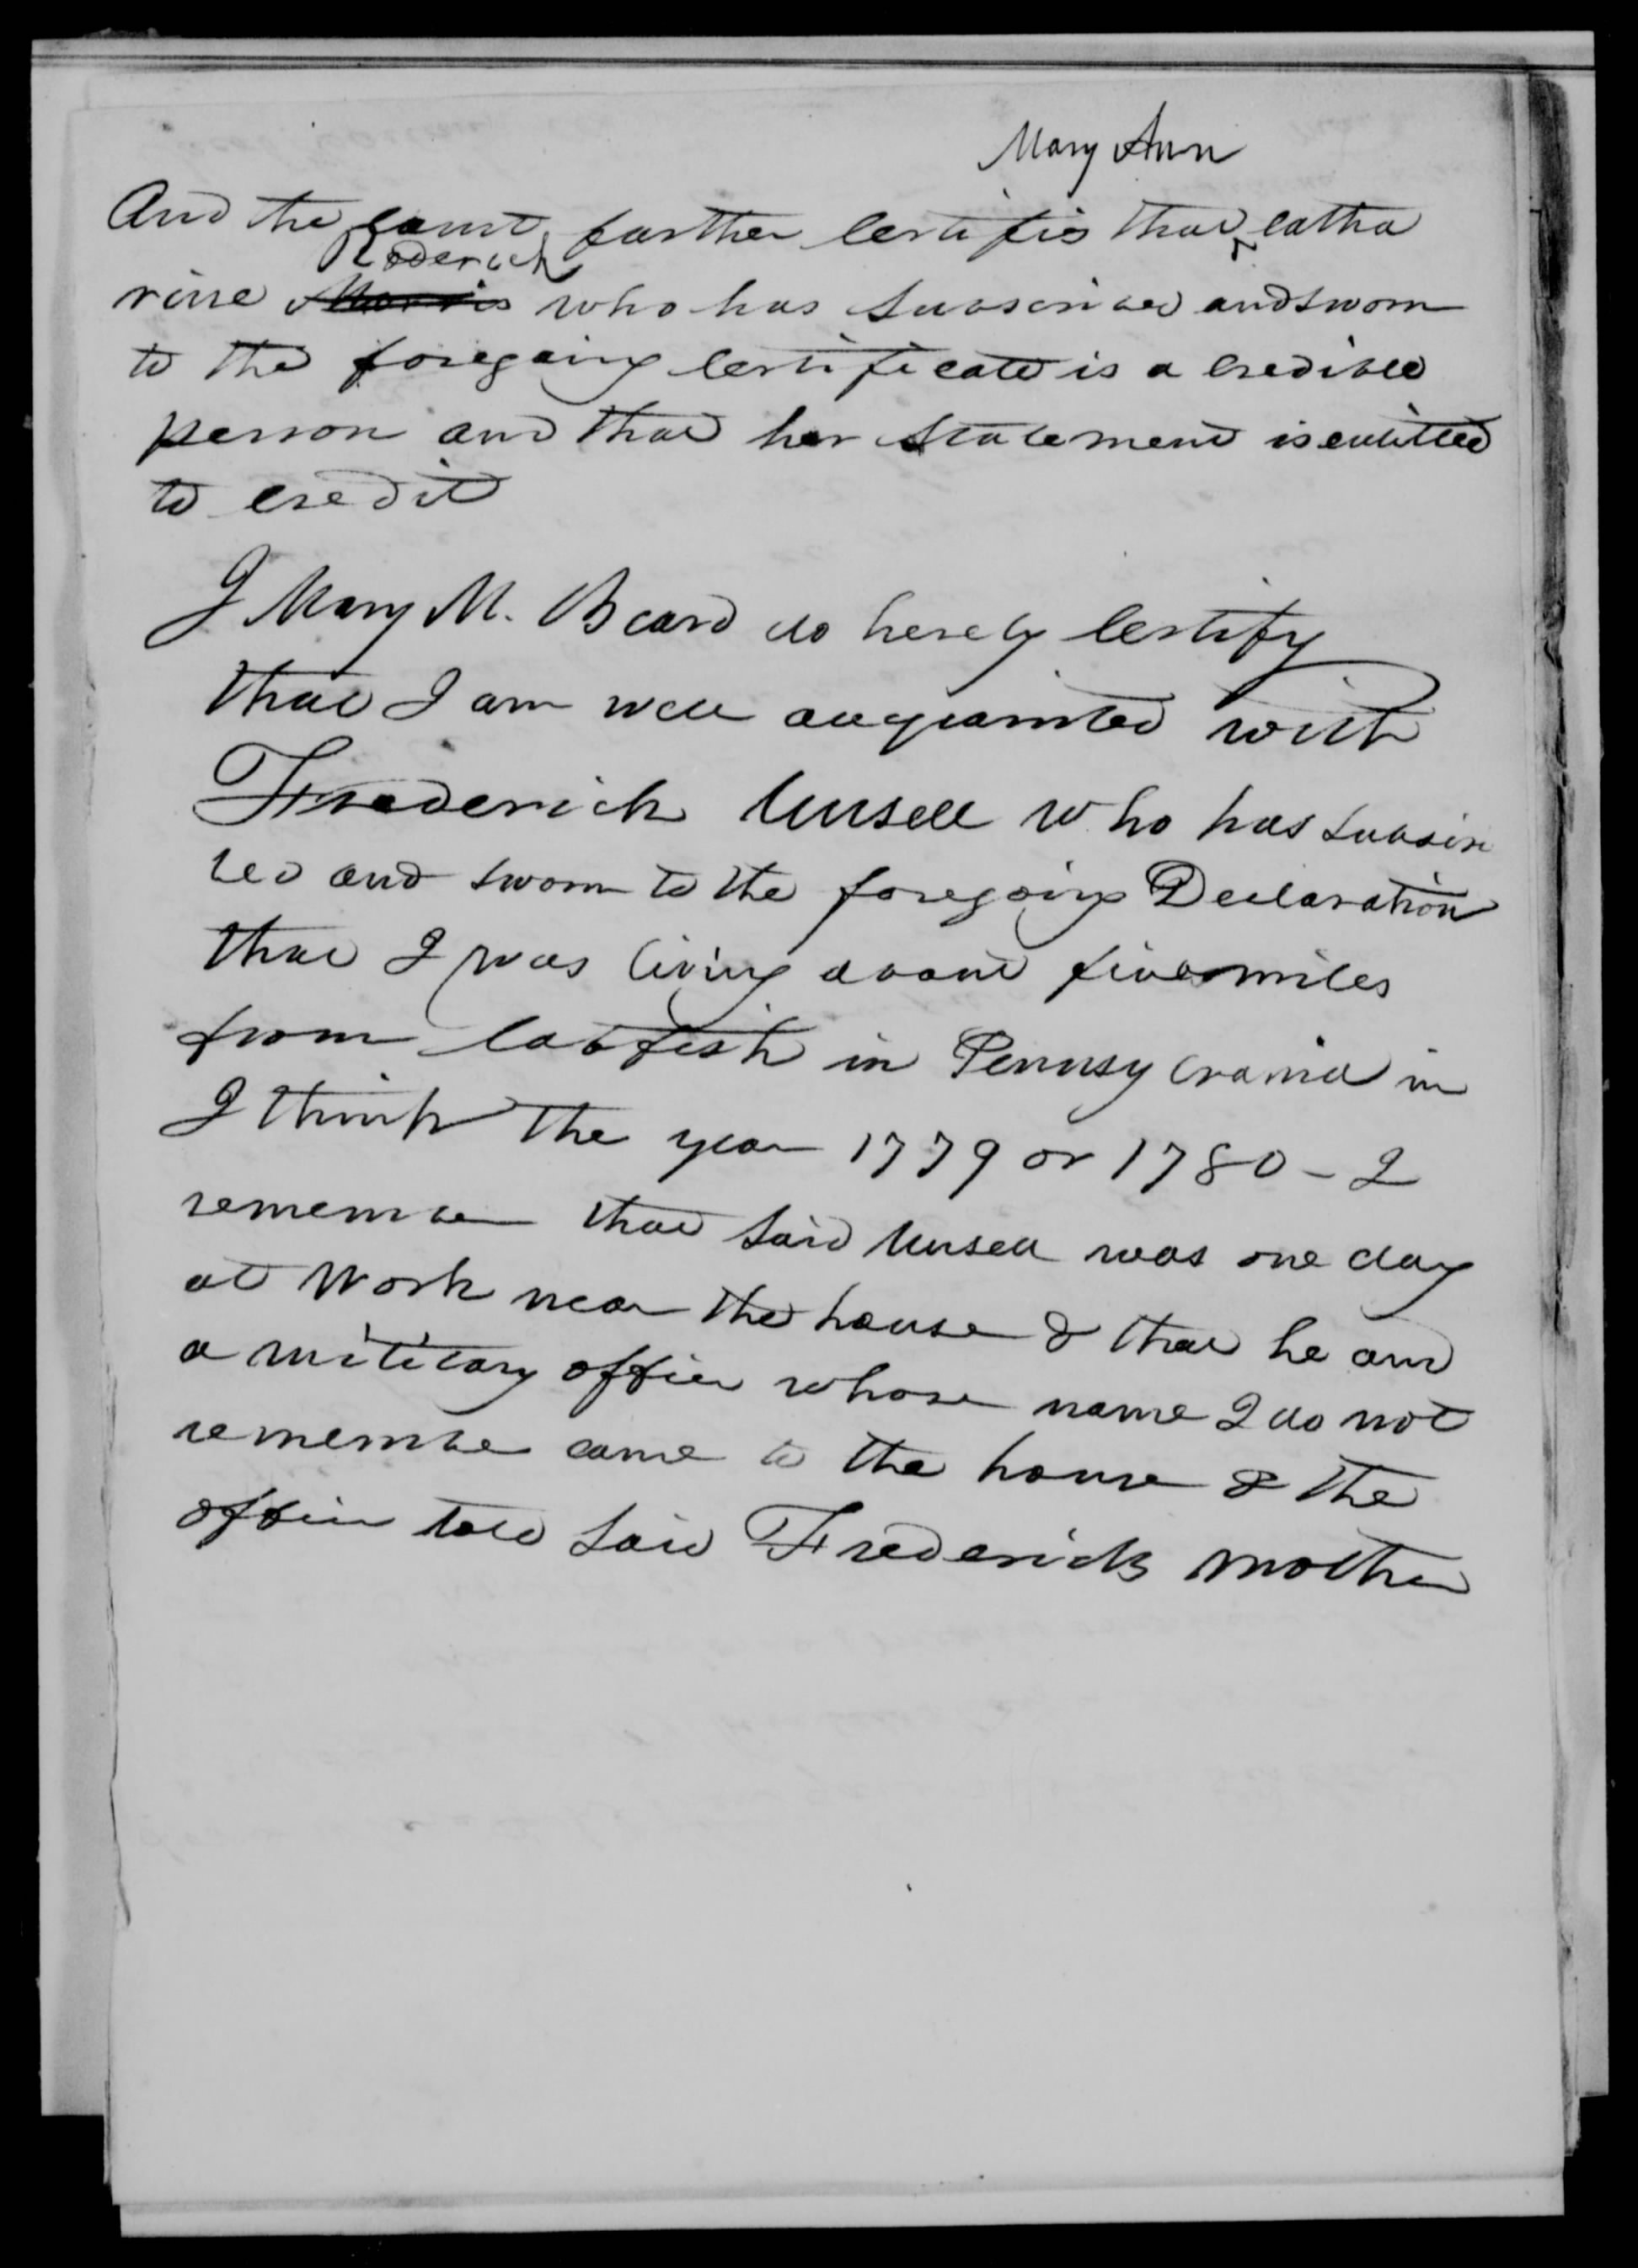 Mary Ann
And the Court further certifies that ^ Catha
Roderick
rine Morris who has subscribed and sworn
to the foregoing certificate is a credible
person and that her statement is entitled
to credit
I Mary M. Beard do hereby certify
that I am well acquainted with
Frederick Unsell who has subscri
bed and sworn to the foregoing Declaration
that I was living about five miles
from Catfish in Pennsylvania in
I think the year 1779 or 1780 - I
remember that said Unsell was one day
at work near the house & that he and
a military officer whose name I do not
remember came to the house & the
officer told said Fredericks mother